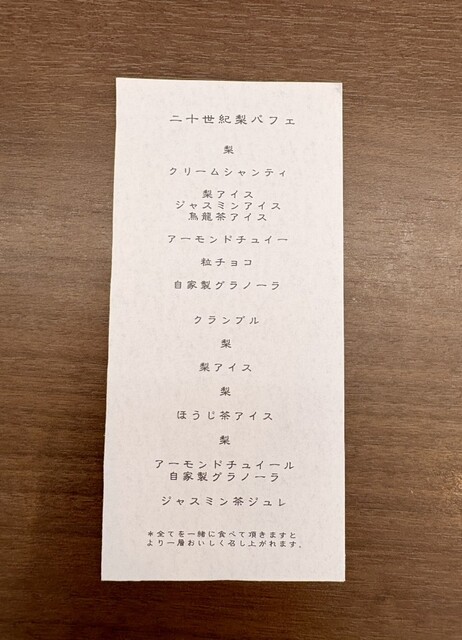 二十世紀梨パフェ
梨
クリームシャンティ
梨アイス
ジャスミンアイス
烏龍茶アイス
アーモンドチュイー
粒チョコ
自家製グラノーラ
クランブル
梨
梨アイス
梨
ほうじ茶アイス
梨
アーモンドチュイール
自家製グラノーラ
ジャスミン茶ジュレ
＊全てを一緒に食べて頂きますと
より一層おいしく召し上がれます。